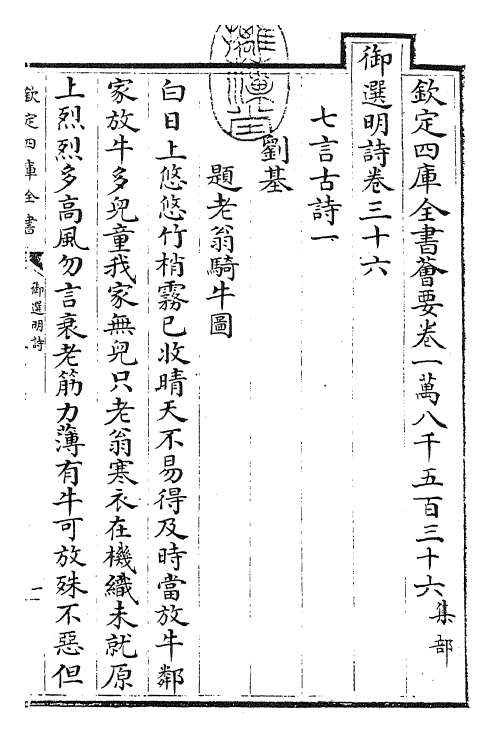 欽定四庫全書薈要卷一萬八千五百三十六集部
御選明詩卷三十六
七言古詩一
劉基
題老翁騎牛圖
白日上悠悠竹梢霧已收晴天不易得及時當放牛鄰
家放牛多兒童我家無兒只老翁寒衣在機織未就原
上烈烈多高風勿言衰老筋力薄有牛可放殊不惡但
欽定四庫全書
御選明詩